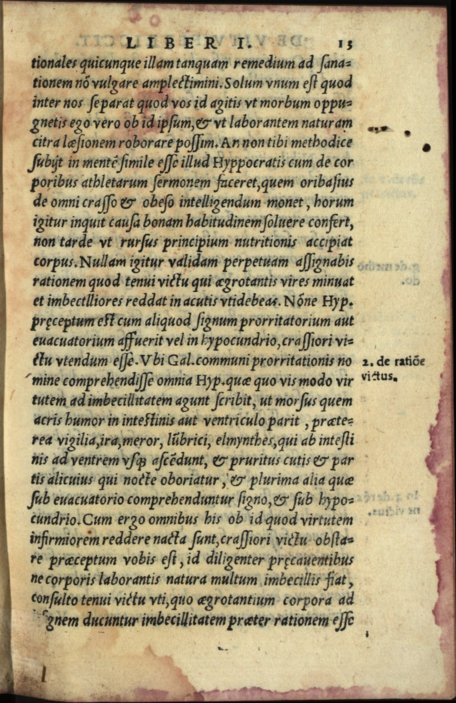 LIBER I. 15
tionales quicunque illam tanquam remedium ad sana=
tionem nõ vulgare amplectimini. Solum vnum est quod
inter nos separat quod vos id agitis vt morbum oppu=
gnetis ego vero ob id ipsum, & vt laborantem naturam
citra læsionem roborare possim. An non tibi methodice
subijt in mentẽ simile esse illud Hyppocratis cum de cor
poribus athletarum sermonem faceret, quem oribasius
de omni crasso & obeso intelligendum monet, horum
igitur inquit causa bonam habitudinem soluere confert,
non tarde vt rursus principium nutritionis accipiat
corpus. Nullam igitur validam perpetuam assignabis
rationem quod tenui victu qui ægrotantis vires minuat
et imbecilliores reddat in acutis vtidebeas. Nõne Hyp.
pręceptum est cum aliquod signum prorritatorium aut
euacuatorium affuerit vel in hypocundrio, crassiori vi=
ctu vtendum esse. Vbi Gal. communi prorritationis no
mine comprehendisse omnia Hyp. quæ quo vis modo vir
tutem ad imbecillitatem agunt scribit, ut morsus quem
acris humor in intestinis aut ventriculo parit, præte=
rea vigilia, ira, meror, lũbrici, elmynthes, qui ab intesti
nis ad ventrem vsq; ascẽdunt, & pruritus cutis & par
tis alicuius qui nocte oboriatur, & plurima alia quæ
sub euacuatorio comprehenduntur signo, & sub hypo=
cundrio. Cum ergo omnibus his ob id quod virtutem
infirmiorem reddere nacta sunt, crassiori victu obsta=
re præceptum vobis est, id diligenter pręcauentibus
ne corporis laborantis natura multum imbecillis fiat,
consulto tenui victu vti, quo ægrotantium corpora ad
signem ducuntur imbecillitatem præter rationem esse
2. de ratiõe
victus.